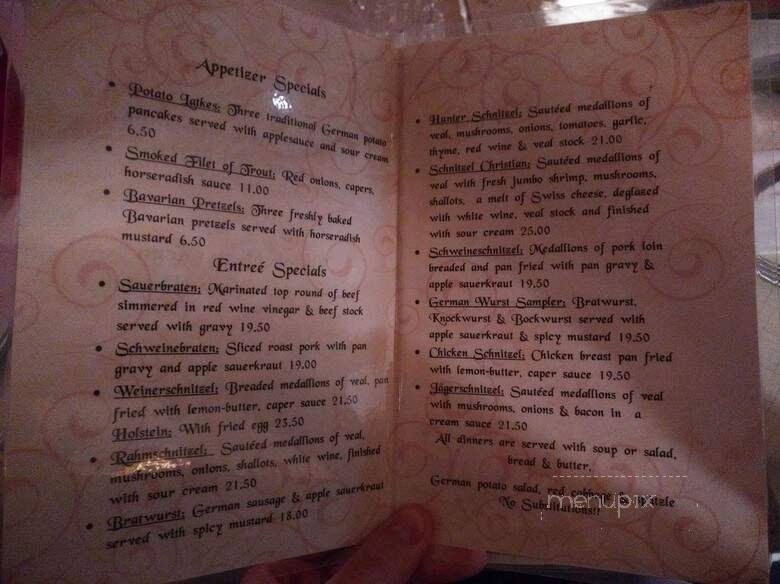 Appetizer Specials
Potato Latkes: Three traditional German potato
pancakes served with applesauce and sour cream
6.50
Smoked Filet of Trout: Red onions, capers,
horseradish sauce 11.00
Bavarian Pretzels: Three freshly baked
Bavarian pretzels served with horseradish
mustard 6.50
Entreé Specials
Sauerbraten: Marinated top round of beef
simmered in red wine vinegar & beef stock
served with gravy 19.50
Schweinebraten: Sliced roast pork with pan
gravy and apple sauerkraut 19.00
Weinerschnitzel: Breaded medallions of veal, pan
fried with lemon-butter, caper sauce 21.50
Holstein: With fried egg 23.50
Rahmschnitzel: Sautéed medallions of veal,
mushrooms, onions, shallots, white wine, finished
with sour cream 21.50
Bratwurst: German sausage & apple sauerkraut
served with spicy mustard 18.00
Hunter Schnitzel: Sautéed medallions of
veal, mushrooms, onions, tomatoes, garlic,
thyme, red wine & veal stock 21.00
Schnitzel Christian: Sautéed medallions of
veal with fresh jumbo shrimp, mushrooms,
shallots, a melt of Swiss cheese, deglazed
with white wine, veal stock and finished
with sour cream 25.00
Schweineschnitzel: Medallions of pork loin
breaded and pan fried with pan gravy &
apple sauerkraut 19.50
German Wurst Sampler: Bratwurst,
Knockwurst & Bockwurst served with
apple sauerkraut & spicy mustard 19.50
Chicken Schnitzel: Chicken breast pan fried
with lemon-butter, caper sauce 19.50
Jägerschnitzel: Sautéed medallions of veal
with mushrooms, onions & bacon in a
cream sauce 21.50
All dinners are served with soup or salad,
bread & butter,
German potato salad, red cabbage
No Substitutions!!
menupix